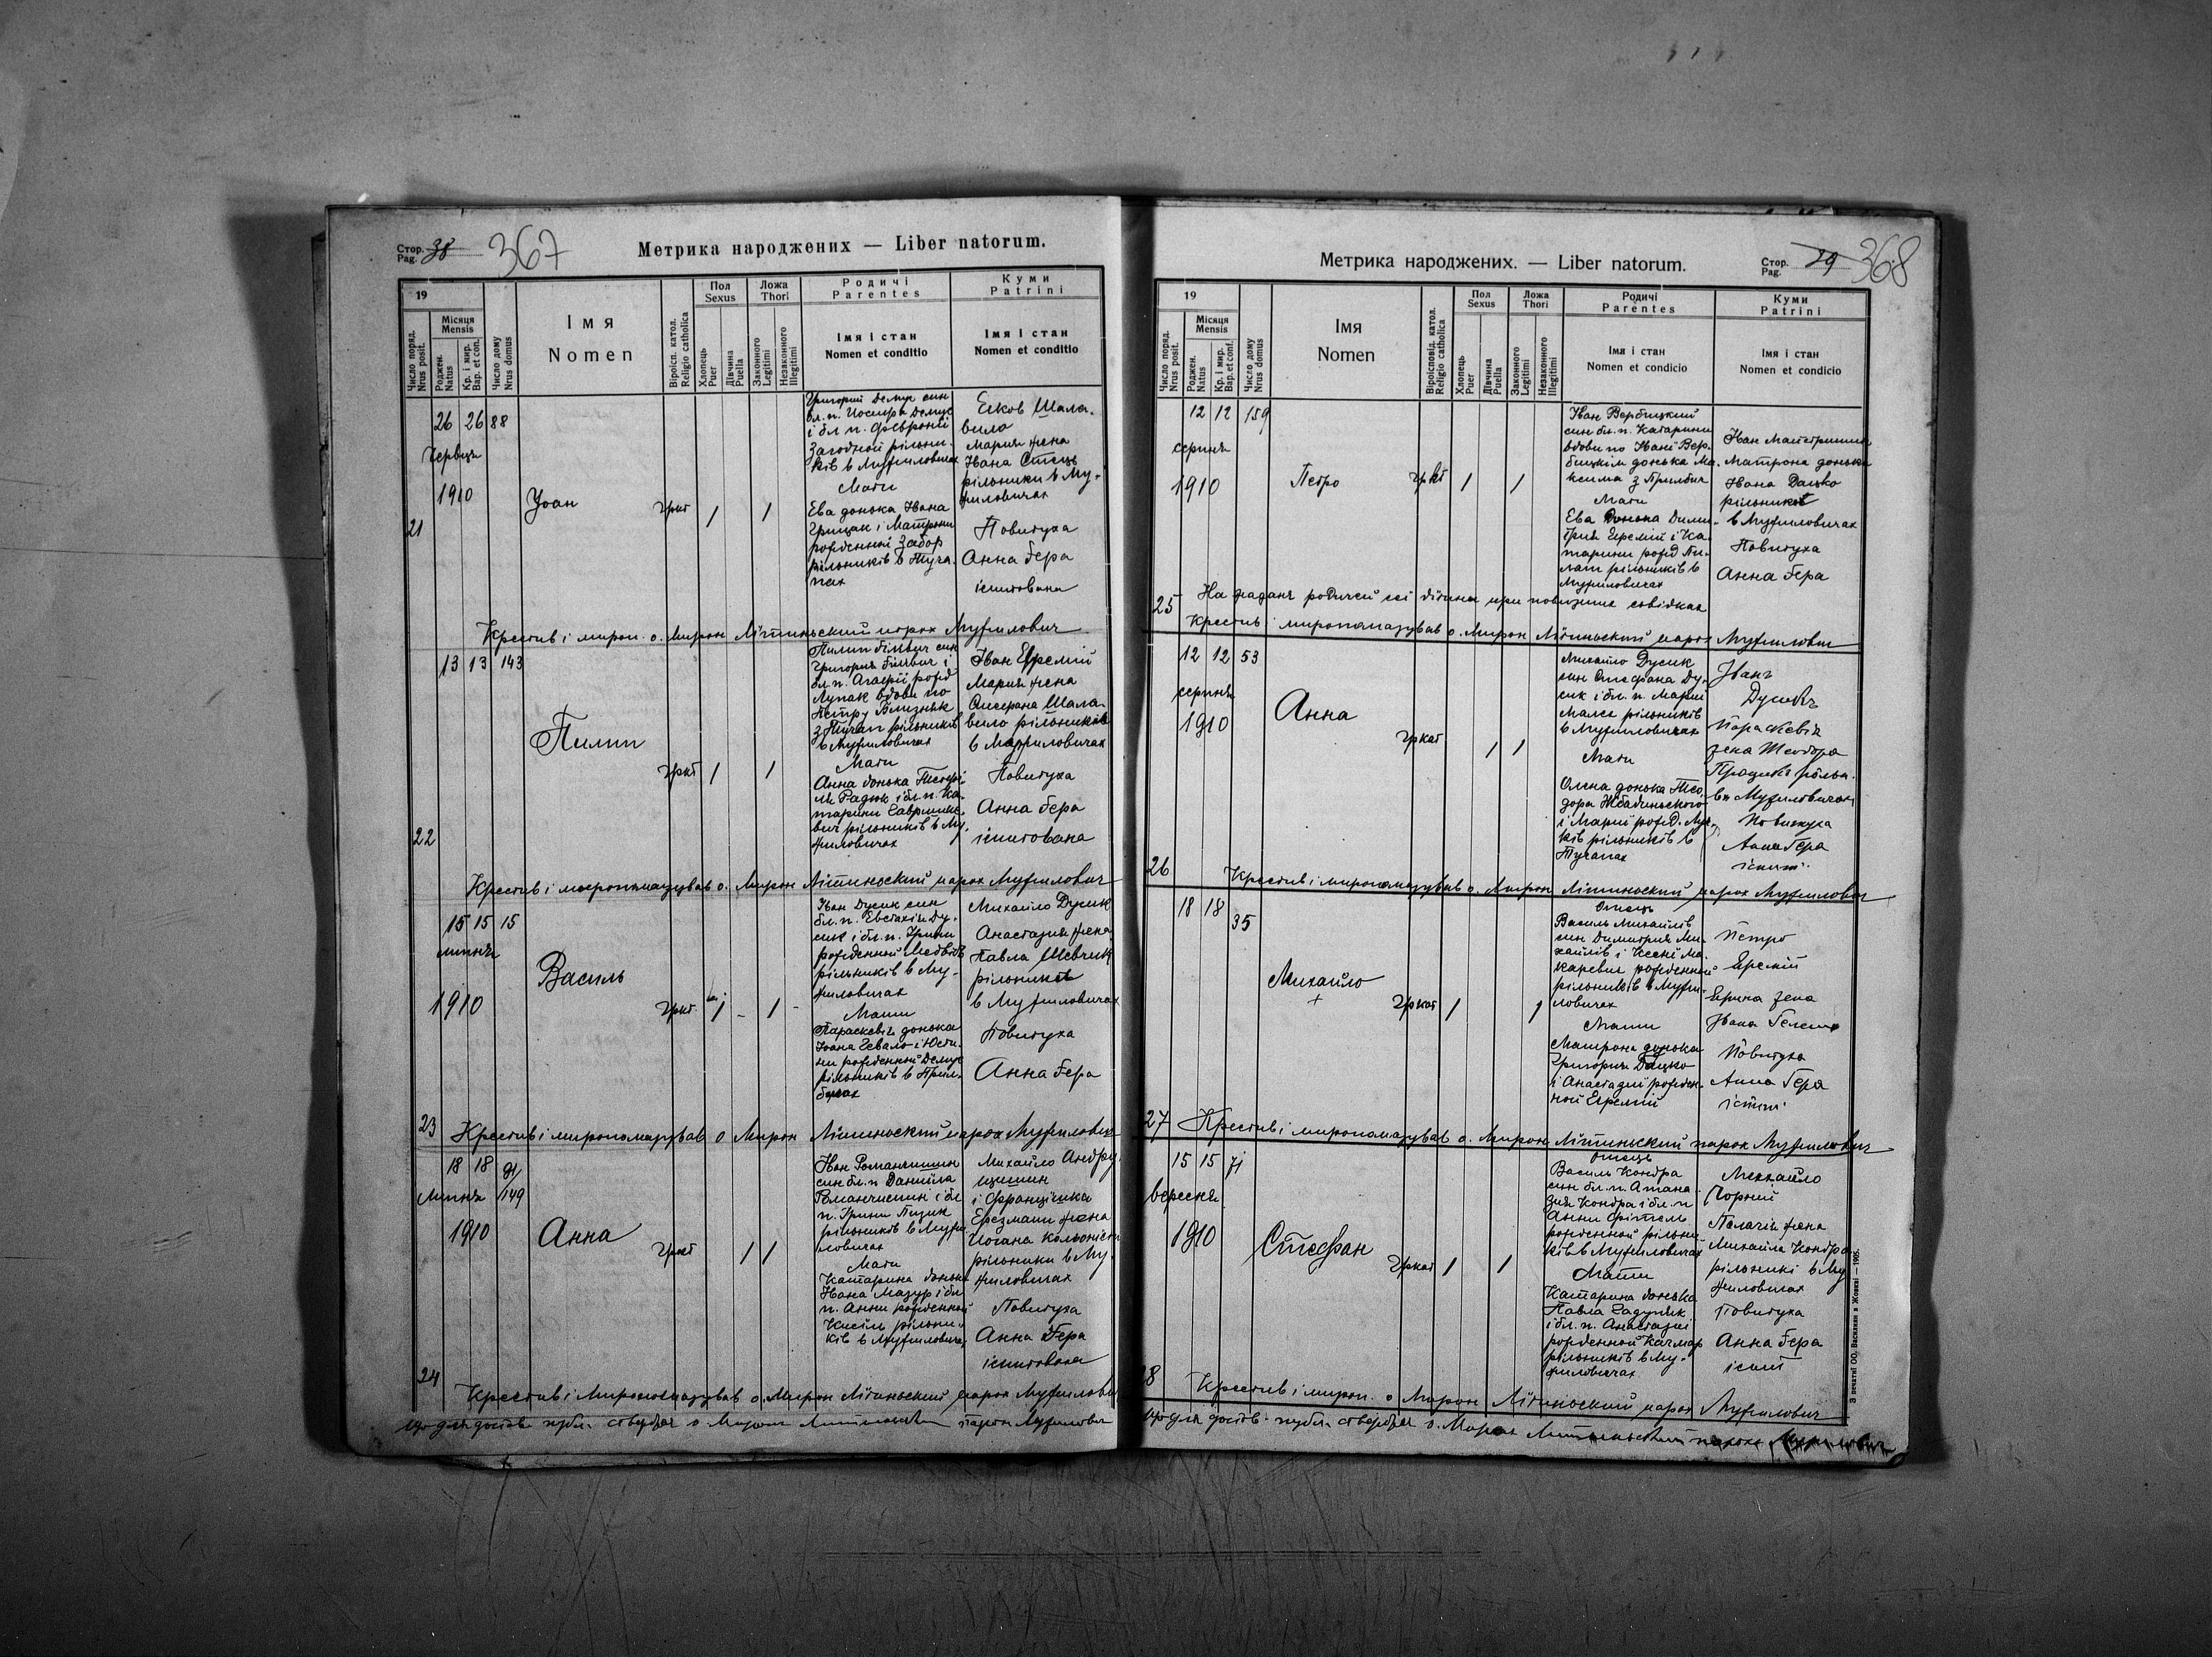 Стор. 38
Pag.
367
Метрика народжених — Liber natorum.
19
Місяця
Mensis
Число поряд.
Nrus posit.
Роджен.
Natus
Кр. і мир.
Bap. et con.
Число дому
Nrus domus
Імя
Nomen
Віроісп. катол.
Religio catholica
Пол
Sexus
Хлопець
Puer
Дівчина
Puella
Ложа
Thori
Законного
Legitimi
Незаконного
Illegitimi
Родичі
Parentes
Імя і стан
Nomen et conditio
Куми
Patrini
Імя і стан
Nomen et conditio
21
26 26 88
Червця
1910
Йоан
гркт
1 1
Григорий Демус син
бл. п. Йосифа Демус
і бл п. Февронії
Загодной рільни-
ків в Мужиловичах
Мати
Ева донька Івана
Грицак і Матрони
рожденной Забор
рільників в Туча-
пах
Яков Шала-
вило
Мария жена
Івана Стець
рільники в Му-
жиловичах
Повитуха
Анна Гера
іспитована
Крестив і мироп. о. Мирон Літиньский парох Мужилович
22
13 13 143
Пилип
гркт
1 1
Григория
бл. п.
Лупак вдови по
Петру Близняк
з Тучап рільників
в Мужиловичах
Мати
Анна донька
Радюк і бл. п. Ка-
тарини
рільників в Му-
жиловичах
Іван Єремій
Мария жена
Стефана Шала-
вило рільників
в Мужиловичах
Повитуха
Анна Гера
іспитована
Крестив і миропомазував о. Мирон Літиньский парох Мужилович
23
15 15 15
липня
1910
Василь
гркт
1 1
Іван Дусик син
бл. п. Евстахія Ду-
сик і бл. п. Ірини
рожденной Медвідь
рільників в Му-
жиловичах
Мати
Параскевія донька
Іоана Чевало і Юсти-
ни рожденной Демус
рільників в Прил-
бичах
Михайло Дусик
Анастазия жена
Павла Шевчик
рільників
в Мужиловичах
Повитуха
Анна Гера
Крестив і миропомазував о Мирон Літиньский парох Мужилович
24
18 18 91
Липня 149
1910
Анна
гркт
1 1
Іван Романчишин
син бл. п Даниїла
Романчишин і бл
п. Ірини
рільників в Мужи-
ловичах
Мати
Катарина донька
Івана Мазур і бл
п. Анни рожденной
Кисіль рільни-
ків в Мужиловичах
Михайло Андру-
щишин
і Франціїшка
жена
Йогана Кольоніст
рільники в Му-
жиловичах
Повитуха
Анна Гера
іспитована
Крестив і Миропомазував о. Мирон Літиньский парох Мужилович
о Мирон Литиньский парох Мужилович
Стор. 39
Pag.
368
Метрика народжених. — Liber natorum.
19
Місяця
Mensis
Число поряд.
Nrus posit.
Роджен.
Natus
Кр. і мир.
Bap. et conf.
Число дому
Nrus domus
Імя
Nomen
Віроісповід. катол.
Religio catholica
Пол
Sexus
Хлопець
Puer
Дівчина
Puella
Ложа
Thori
Законного
Legitimi
Незаконного
Illegitimi
Родичі
Parentes
Імя і стан
Nomen et condicio
Куми
Patrini
Імя і стан
Nomen et condicio
25
12 12 159
серпня
1910
Петро
гркт
1 1
Іван Вербицкий
син бл. п. Катарини
вдови по Івані Вер-
бицкім донька Ма-
ксима з Прилбич
Мати
Ева Донька Дими-
трия Єремій і Ка-
тарини рожд Пи-
лат рільників в
Мужиловичах
Іван
Матрона донька
Івана Дацко
рільників
в Мужиловичах
Повитуха
Анна Гера
На жаданє родичей сеї дітини при повизших свідках
Крестив миропомазував о. Мирон Літиньский парох Мужилович
26
12 12 53
серпня
1910
Анна
гркат
1 1
Михайло Дусик
син Стефана Ду-
сик і бл. п. Марії
рільників
в Мужиловичах
Мати
Олена донька Тео-
дора
і Марії рожд.
рільників в
Тучапах
Іван
Дусик
Параскевія
жена Теодора
рільн.
в Мужиловичах
Повитуха
Анна Гера
іспит.
Крестив і миропомазував о. Мирон Літиньский парох Мужилович
27
18 18
35
Михайло
+
гркат
1 1
Отець
Василь Михайлів
син Димитрия Ми-
хайлів і Ксені Ма-
каревич рожденной
рільників в Мужи-
ловичах
Мати
Матрона донька
Григория Дацко
і Анастазиї рожден-
ной Єремій
Петро
Єремій
Ірина жена
Івана
Повитуха
Анна Гера
іспит
Крестив і миропомазував о. Мирон Літиньский парох Мужилович
28
15 15 71
вересня
1910
Стефан
гркат
1 1
отець
Василь Кондра
син бл. п. Атана-
зия Кондра і бл. п
Анни
рожденной рільни-
ків в Мужиловичах
Мати
Катарина донька
Павла
і бл. п. Анастазиї
рожденной Качмар
рільників в Му-
жиловичах
Михайло
Чорний
Пелагія жена
Михайла Кондра
рільникі в Му
жиловичах
Повитуха
Анна Гера
іспит
Крестив і мироп. о Мирон Літиньский парох Мужилович
о. Мирон Литиньский парох Мужилович
З печатні ОО. Василиян в Жовкві — 1905.